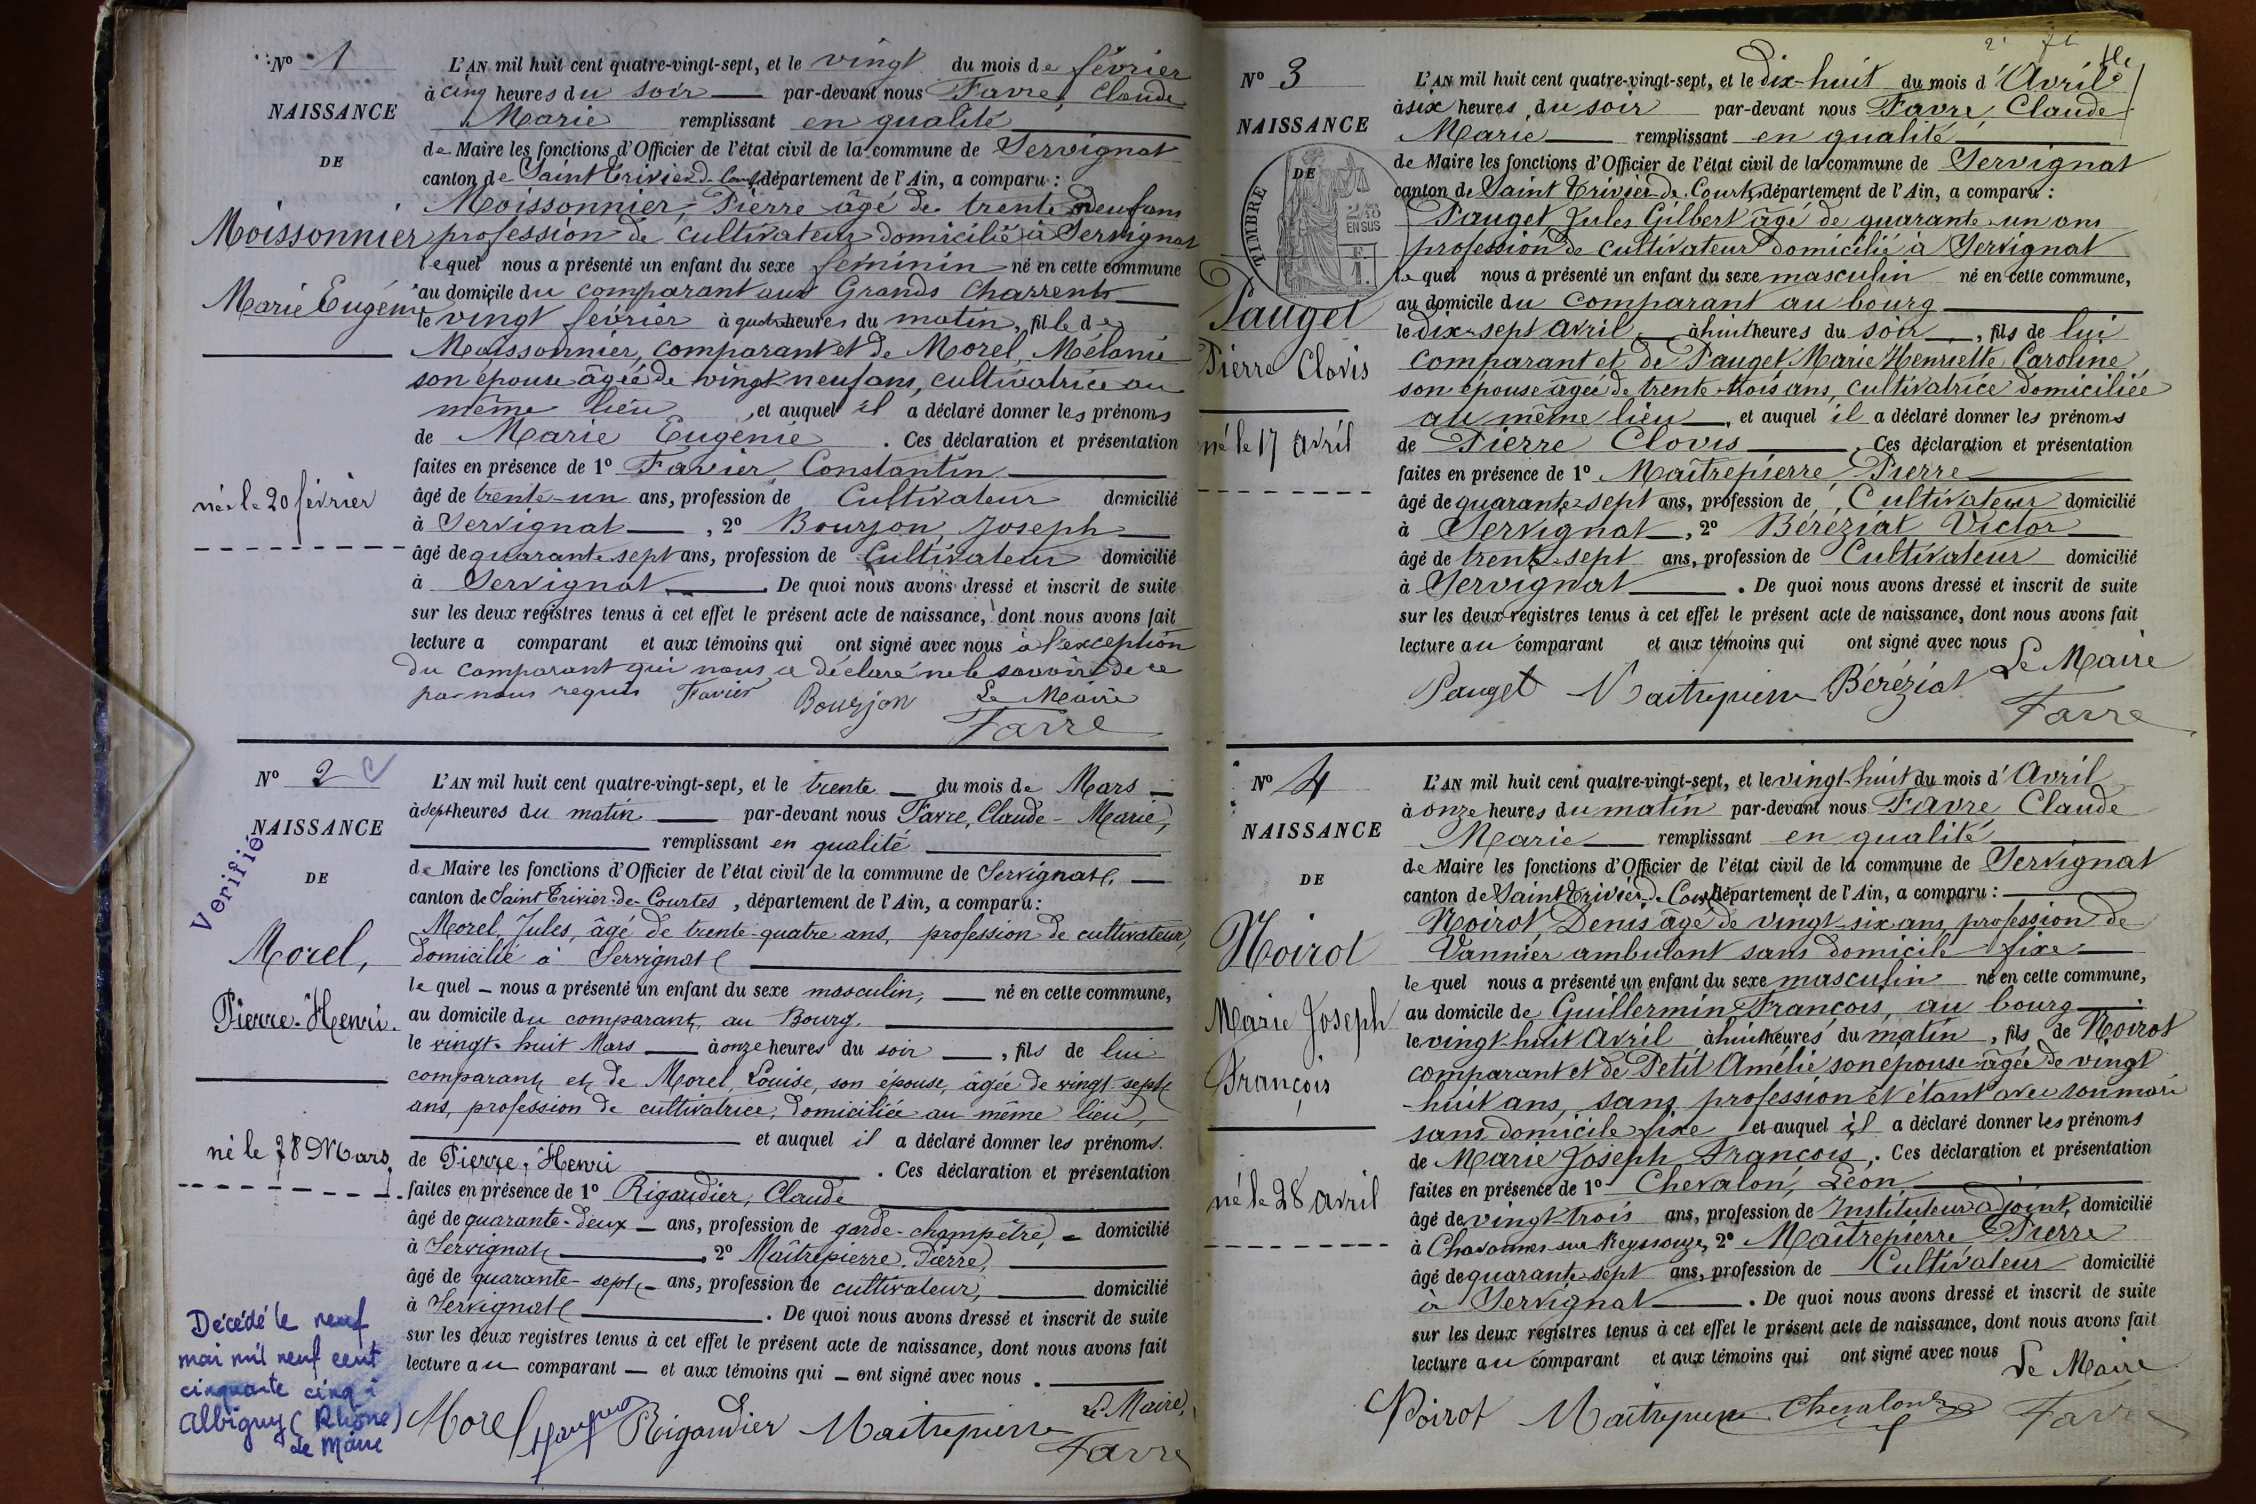 Nº 1
NAISSANCE
DE
Moissonnier
Marie Eugénie
née le 20 février
L'AN mil huit cent quatre-vingt-sept, et le vingt du mois de février
à cinq heures du soir par-devant nous Favre, Claude
Marie remplissant en qualité
de Maire les fonctions d'Officier de l'état civil de la commune de Servignat
canton de Saint Trivier de Courtes département de l'Ain, a comparu :
Moissonnier, Pierre âgé de trente neuf ans
profession de cultivateur domicilié à Servignat
lequel nous a présenté un enfant du sexe féminin né en cette commune
au domicile du comparant aux Grands Charrents
le vingt février à quatre heures du matin, fille de
Moissonnier, comparant et de Morel, Mélanie
son épouse âgée de vingt neuf ans, cultivatrice au
même lieu, et auquel il a déclaré donner les prénoms
de Marie Eugénie. Ces déclaration et présentation
faites en présence de 1º Favier, Constantin
âgé de trente-un ans, profession de Cultivateur domicilié
à Servignat, 2º Bourjon, Joseph
âgé de quarante sept ans, profession de Cultivateur domicilié
à Servignat. De quoi nous avons dressé et inscrit de suite
sur les deux registres tenus à cet effet le présent acte de naissance, dont nous avons fait
lecture a comparant et aux témoins qui ont signé avec nous à l'exception
du comparant qui nous a déclaré ne le savoir de ce
par nous requis Favier Bourjon Le Maire
Favre
Nº 2
NAISSANCE
DE
Verifié
Morel,
Pierre-Henri.
né le 28 Mars
Décédé le neuf
mai mil neuf cent
cinquante cinq à
Albigny (Rhône)
Le Maire
L'AN mil huit cent quatre-vingt-sept, et le trente du mois de Mars
à sept heures du matin par-devant nous Favre, Claude-Marie,
remplissant en qualité
de Maire les fonctions d'Officier de l'état civil de la commune de Servignat,
canton de Saint Trivier-de-Courtes, département de l'Ain, a comparu :
Morel, Jules, âgé de trente-quatre ans, profession de cultivateur,
domicilié à Servignat
le quel nous a présenté un enfant du sexe masculin, né en cette commune,
au domicile du comparant, au Bourg.
le vingt-huit Mars à onze heures du soir, fils de lui
comparant et de Morel, Louise, son épouse, âgée de vingt-sept
ans, profession de cultivatrice, domiciliée au même lieu,
et auquel il a déclaré donner les prénoms
de Pierre-Henri. Ces déclaration et présentation
faites en présence de 1º Rigaudier, Claude
âgé de quarante-deux ans, profession de garde-champêtre, domicilié
à Servignat, 2º Maîtrepierre, Pierre,
âgé de quarante-sept ans, profession de cultivateur, domicilié
à Servignat. De quoi nous avons dressé et inscrit de suite
sur les deux registres tenus à cet effet le présent acte de naissance, dont nous avons fait
lecture au comparant et aux témoins qui ont signé avec nous.
Le Maire,
Morel Rigaudier Maitrepierre
Favre
Nº 3
NAISSANCE
DE
TIMBRE
EN SUS
Pauget
Pierre Clovis
né le 17 avril
L'AN mil huit cent quatre-vingt-sept, et le dix-huit du mois d'Avril
à six heures du soir par-devant nous Favre, Claude
Marie remplissant en qualité
de Maire les fonctions d'Officier de l'état civil de la commune de Servignat
canton de Saint Trivier de Courtes département de l'Ain, a comparu :
Pauget Jules Gilbert âgé de quarante-un ans
profession de cultivateur domicilié à Servignat
le quel nous a présenté un enfant du sexe masculin né en cette commune,
au domicile du comparant au bourg
le dix-sept avril à huit heures du soir, fils de lui
comparant et de Pauget Marie Henriette Caroline
son épouse âgée de trente-trois ans, cultivatrice domiciliée
au même lieu, et auquel il a déclaré donner les prénoms
de Pierre Clovis. Ces déclaration et présentation
faites en présence de 1º Maîtrepierre, Pierre
âgé de quarante-sept ans, profession de Cultivateur domicilié
à Servignat, 2º Béréziat Victor
âgé de trente-sept ans, profession de Cultivateur domicilié
à Servignat. De quoi nous avons dressé et inscrit de suite
sur les deux registres tenus à cet effet le présent acte de naissance, dont nous avons fait
lecture au comparant et aux témoins qui ont signé avec nous
Le Maire
Pauget Maitrepierre Béréziat
Favre
Nº 4
NAISSANCE
DE
Noirot
Marie Joseph
François
né le 28 avril
L'AN mil huit cent quatre-vingt-sept, et le vingt-huit du mois d'Avril
à onze heures du matin par-devant nous Favre, Claude
Marie remplissant en qualité
de Maire les fonctions d'Officier de l'état civil de la commune de Servignat
canton de Saint Trivier de Courtes département de l'Ain, a comparu :
Noirot, Denis âgé de vingt-six ans, profession de
Vannier ambulant sans domicile fixe
le quel nous a présenté un enfant du sexe masculin né en cette commune,
au domicile de Guillermin François, au bourg
le vingt-huit Avril à huit heures du matin, fils de Noirot
comparant et de Petit Amélie son épouse âgée de vingt
huit ans, sans profession et étant avec son mari
sans domicile fixe et auquel il a déclaré donner les prénoms
de Marie Joseph François. Ces déclaration et présentation
faites en présence de 1º Chevalon, Léon
âgé de vingt-trois ans, profession de Instituteur adjoint, domicilié
à Chavannes-sur-Reyssouze, 2º Maîtrepierre Pierre
âgé de quarante sept ans, profession de Cultivateur domicilié
à Servignat. De quoi nous avons dressé et inscrit de suite
sur les deux registres tenus à cet effet le présent acte de naissance, dont nous avons fait
lecture au comparant et aux témoins qui ont signé avec nous
Le Maire
Noirot Maitrepierre Chevalon
Favre